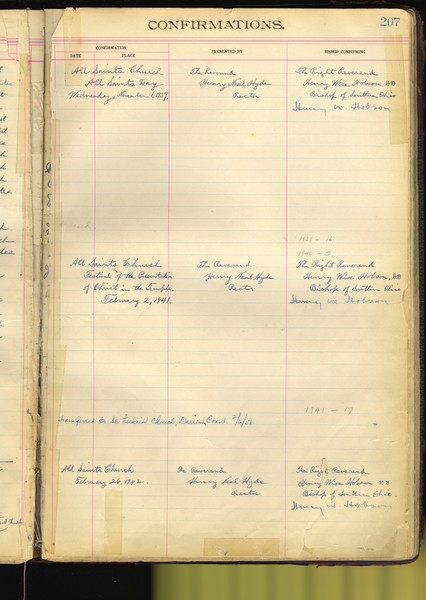 CONFIRMATIONS.
207
CONFIRMATION
DATE PLACE
PRESENTED BY
BISHOP CONFIRMING
All Saints Church
All Saints Day
Wednesday, November 1, 1939.
The Reverend
Henry Neal Hyde
Rector
The Right Reverend
Henry Wise Hobson, DD
Bishop of Southern Ohio
Henry W. Hobson
1939 - 16
1940 -
All Saints Church
Festival of the Presentation
of Christ in the Temple.
February 2, 1941.
The Reverend
Henry Neal Hyde
Rector
The Right Reverend
Henry Wise Hobson, DD
Bishop of Southern Ohio
Henry W Hobson
1941 - 17
Transferred to St. Luke's Church, Darien, Conn.
All Saints Church
February 26, 1942.
The Reverend
Henry Neal Hyde
Rector
The Right Reverend
Henry Wise Hobson DD
Bishop of Southern Ohio
Henry W Hobson